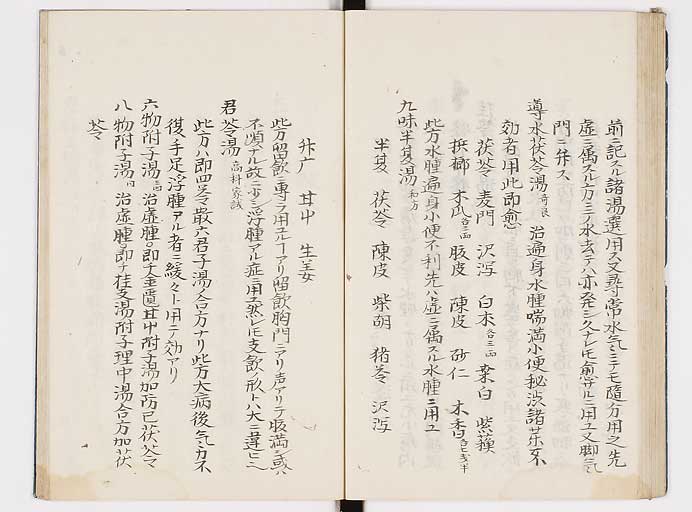 前ニ記スル諸湯選用ス又尋常水氣ニテモ隨分用之先
虛ニ属スル方ニテ水去テハ亦発シ久ナレ𪜈愈ザルニ用ユ又脚氣
門ニ弁ス
導水茯苓湯 奇良 治遍身水腫喘満小便秘渋諸薬不
効者用此即愈
茯苓 麦門 沢瀉 白朮 各三 桑白 紫蘓
梹榔 木瓜 各二 腹皮 陳皮 砂仁 木香
此方水腫遍身小便不利先ハ虛ニ属スル水腫ニ用ユ
九味半夏湯 和方
半夏 茯苓 陳皮 柴胡 猪苓 沢瀉
升广 甘艸 生姜
此方留飲ニ專ラ用ユルヿアリ留飲胸門ニアリ声アリテ腹満シ或ハ
不順ナル故ニ少シ浮腫アル症ニ用ユ然レ𪜈支飲ノ形トハ大ニ違ヒ
君苓湯 高料
此方ハ即四苓散六君子湯ノ合方ナリ此方大病後氣力不
復手足浮腫アル者ニ緩々ト用テ効アリ
六物附子湯 治虛腫即チ金匱甘艸附子湯加防已茯苓
八物附子湯 治虛腫即チ桂支湯附子理中湯合方加茯
苓